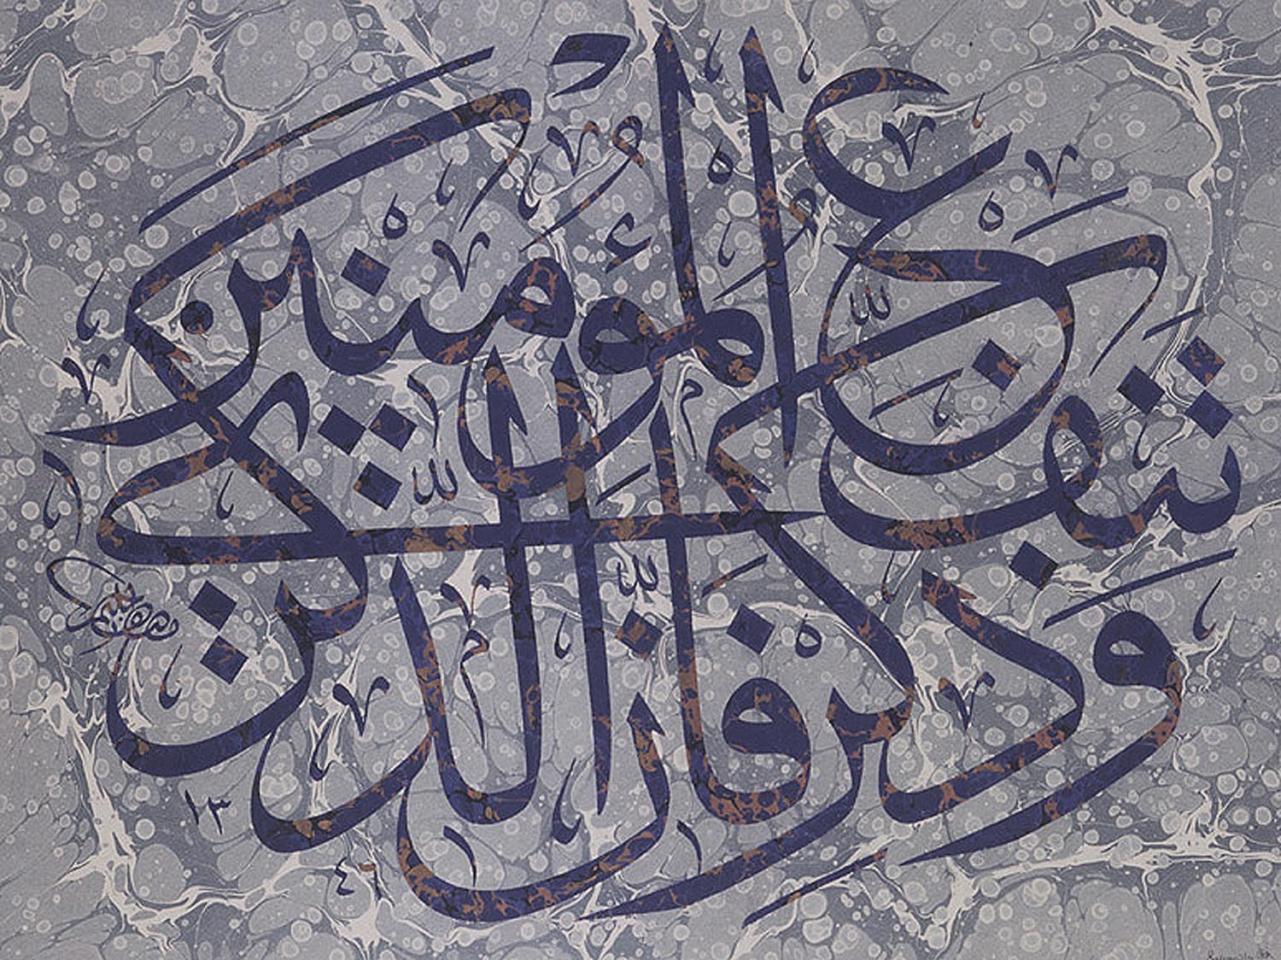 وذكر فإن الذكرى
تنفع المؤمنين